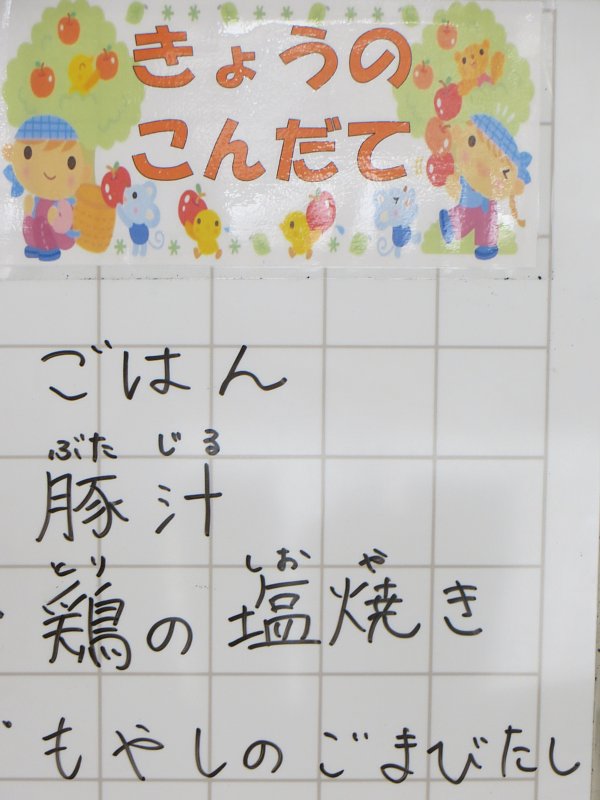 きょうの
こんだて
ごはん
ぶた じる
豚汁
とり しお や
鶏の塩焼き
もやしのごまびたし